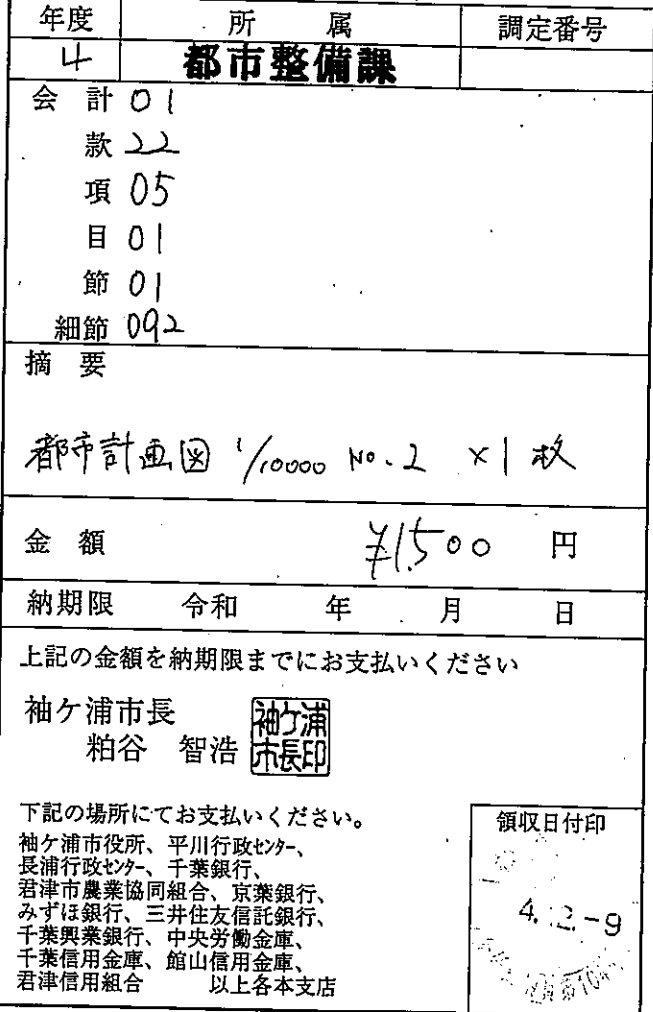 年度 所属 調定番号
4 都市整備課
会計 01
款 22
項 05
目 01
節 01
細節 092
摘要
都市計画図 1/10000 No.2 ×1枚
金額 ¥1,500 円
納期限 令和 年 月 日
上記の金額を納期限までにお支払いください
袖ケ浦市長
粕谷 智浩
袖ケ浦
市長印
下記の場所にてお支払いください。
袖ケ浦市役所、平川行政センター、
長浦行政センター、千葉銀行、
君津市農業協同組合、京葉銀行、
みずほ銀行、三井住友信託銀行、
千葉興業銀行、中央労働金庫、
千葉信用金庫、館山信用金庫、
君津信用組合 以上各本支店
領収日付印
4.12.-9